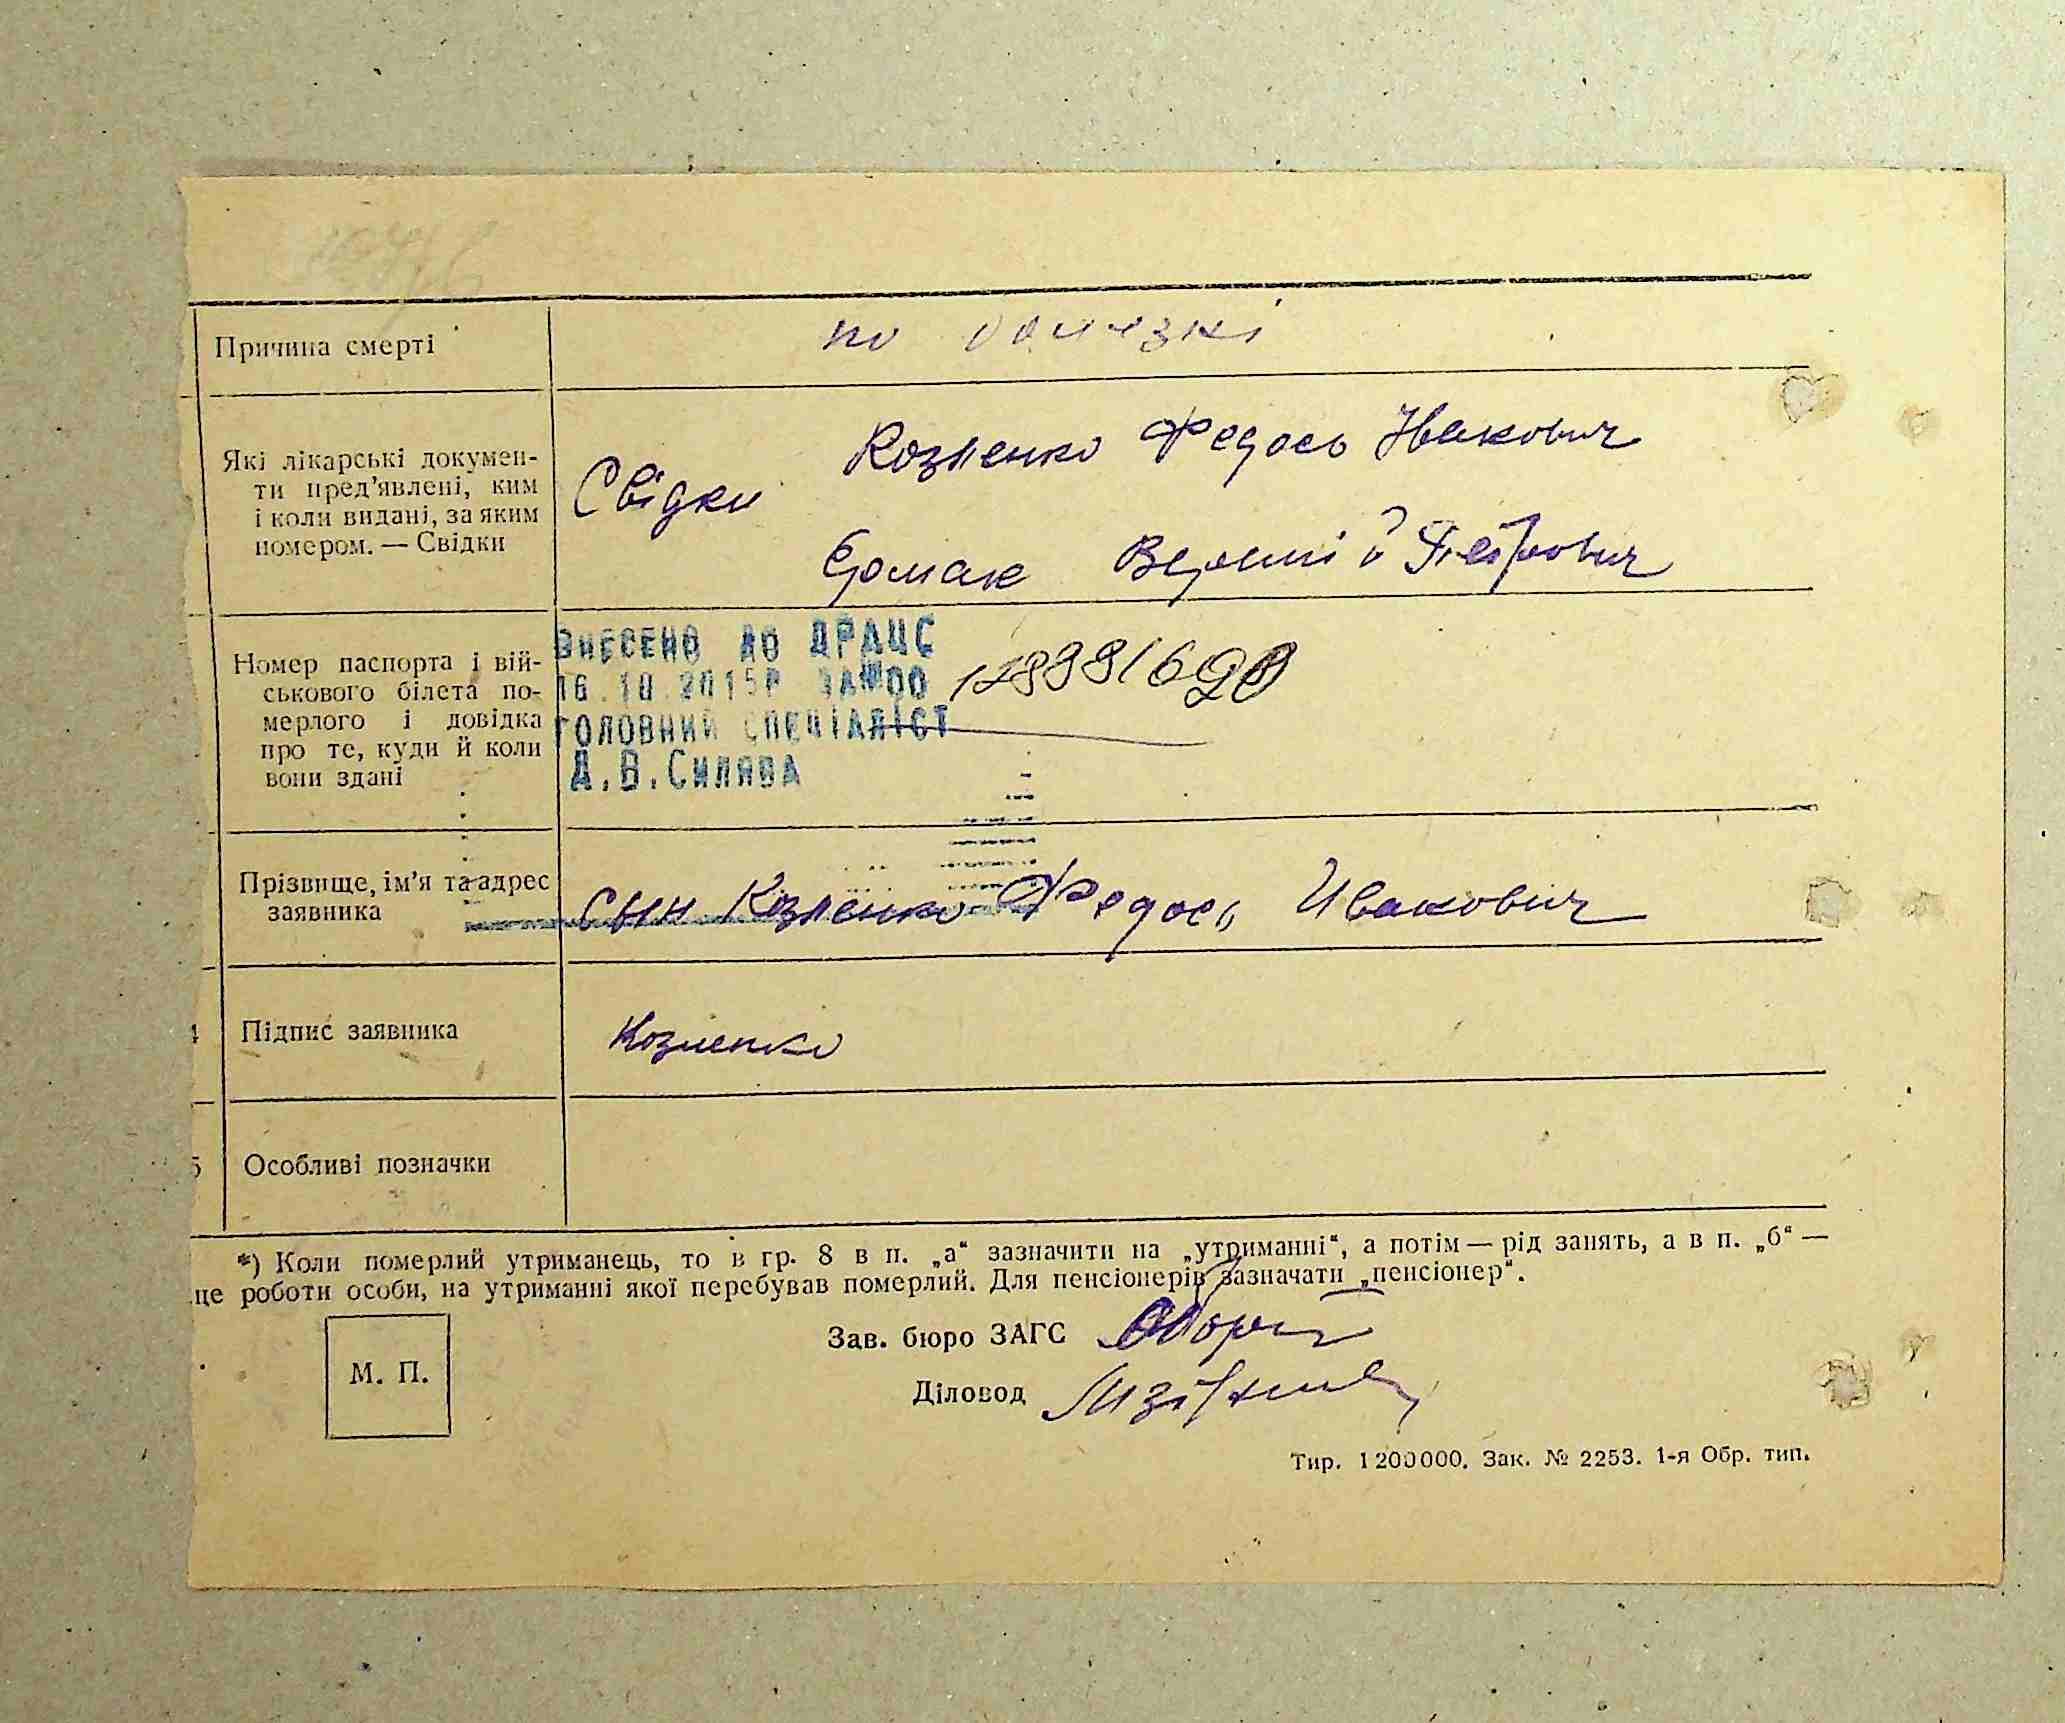 Причина смерті
по
Які лікарські документи пред'явлені, ким
і коли видані, за яким
номером. — Свідки
Свідки
Козленко Федось Иванович
Єрмак Петрович
Номер паспорта і вій-
ськового білета по-
мерлого і довідка
про те, куди й коли
вони здані
ВНЕСЕНО ДО ДРАЦС
16.10.2015Р ЗА №00
ГОЛОВНИЙ СПЕЦІАЛІСТ
Д.В.СИЛЯВА
Прізвище, ім'я та адрес
заявника
Сын Козленко Федось Иванович
4
Підпис заявника
Козленко
5
Особливі позначки
*) Коли померлий утриманець, то в гр. 8 в п. „а“ зазначити на „утриманні“, а потім — рід занять, а в п. „б“ —
це роботи особи, на утриманні якої перебував померлий. Для пенсіонерів зазначати „пенсіонер“.
Зав. бюро ЗАГС
М. П.
Діловод
Тир. 1200000. Зак. № 2253. 1-я Обр. тип.